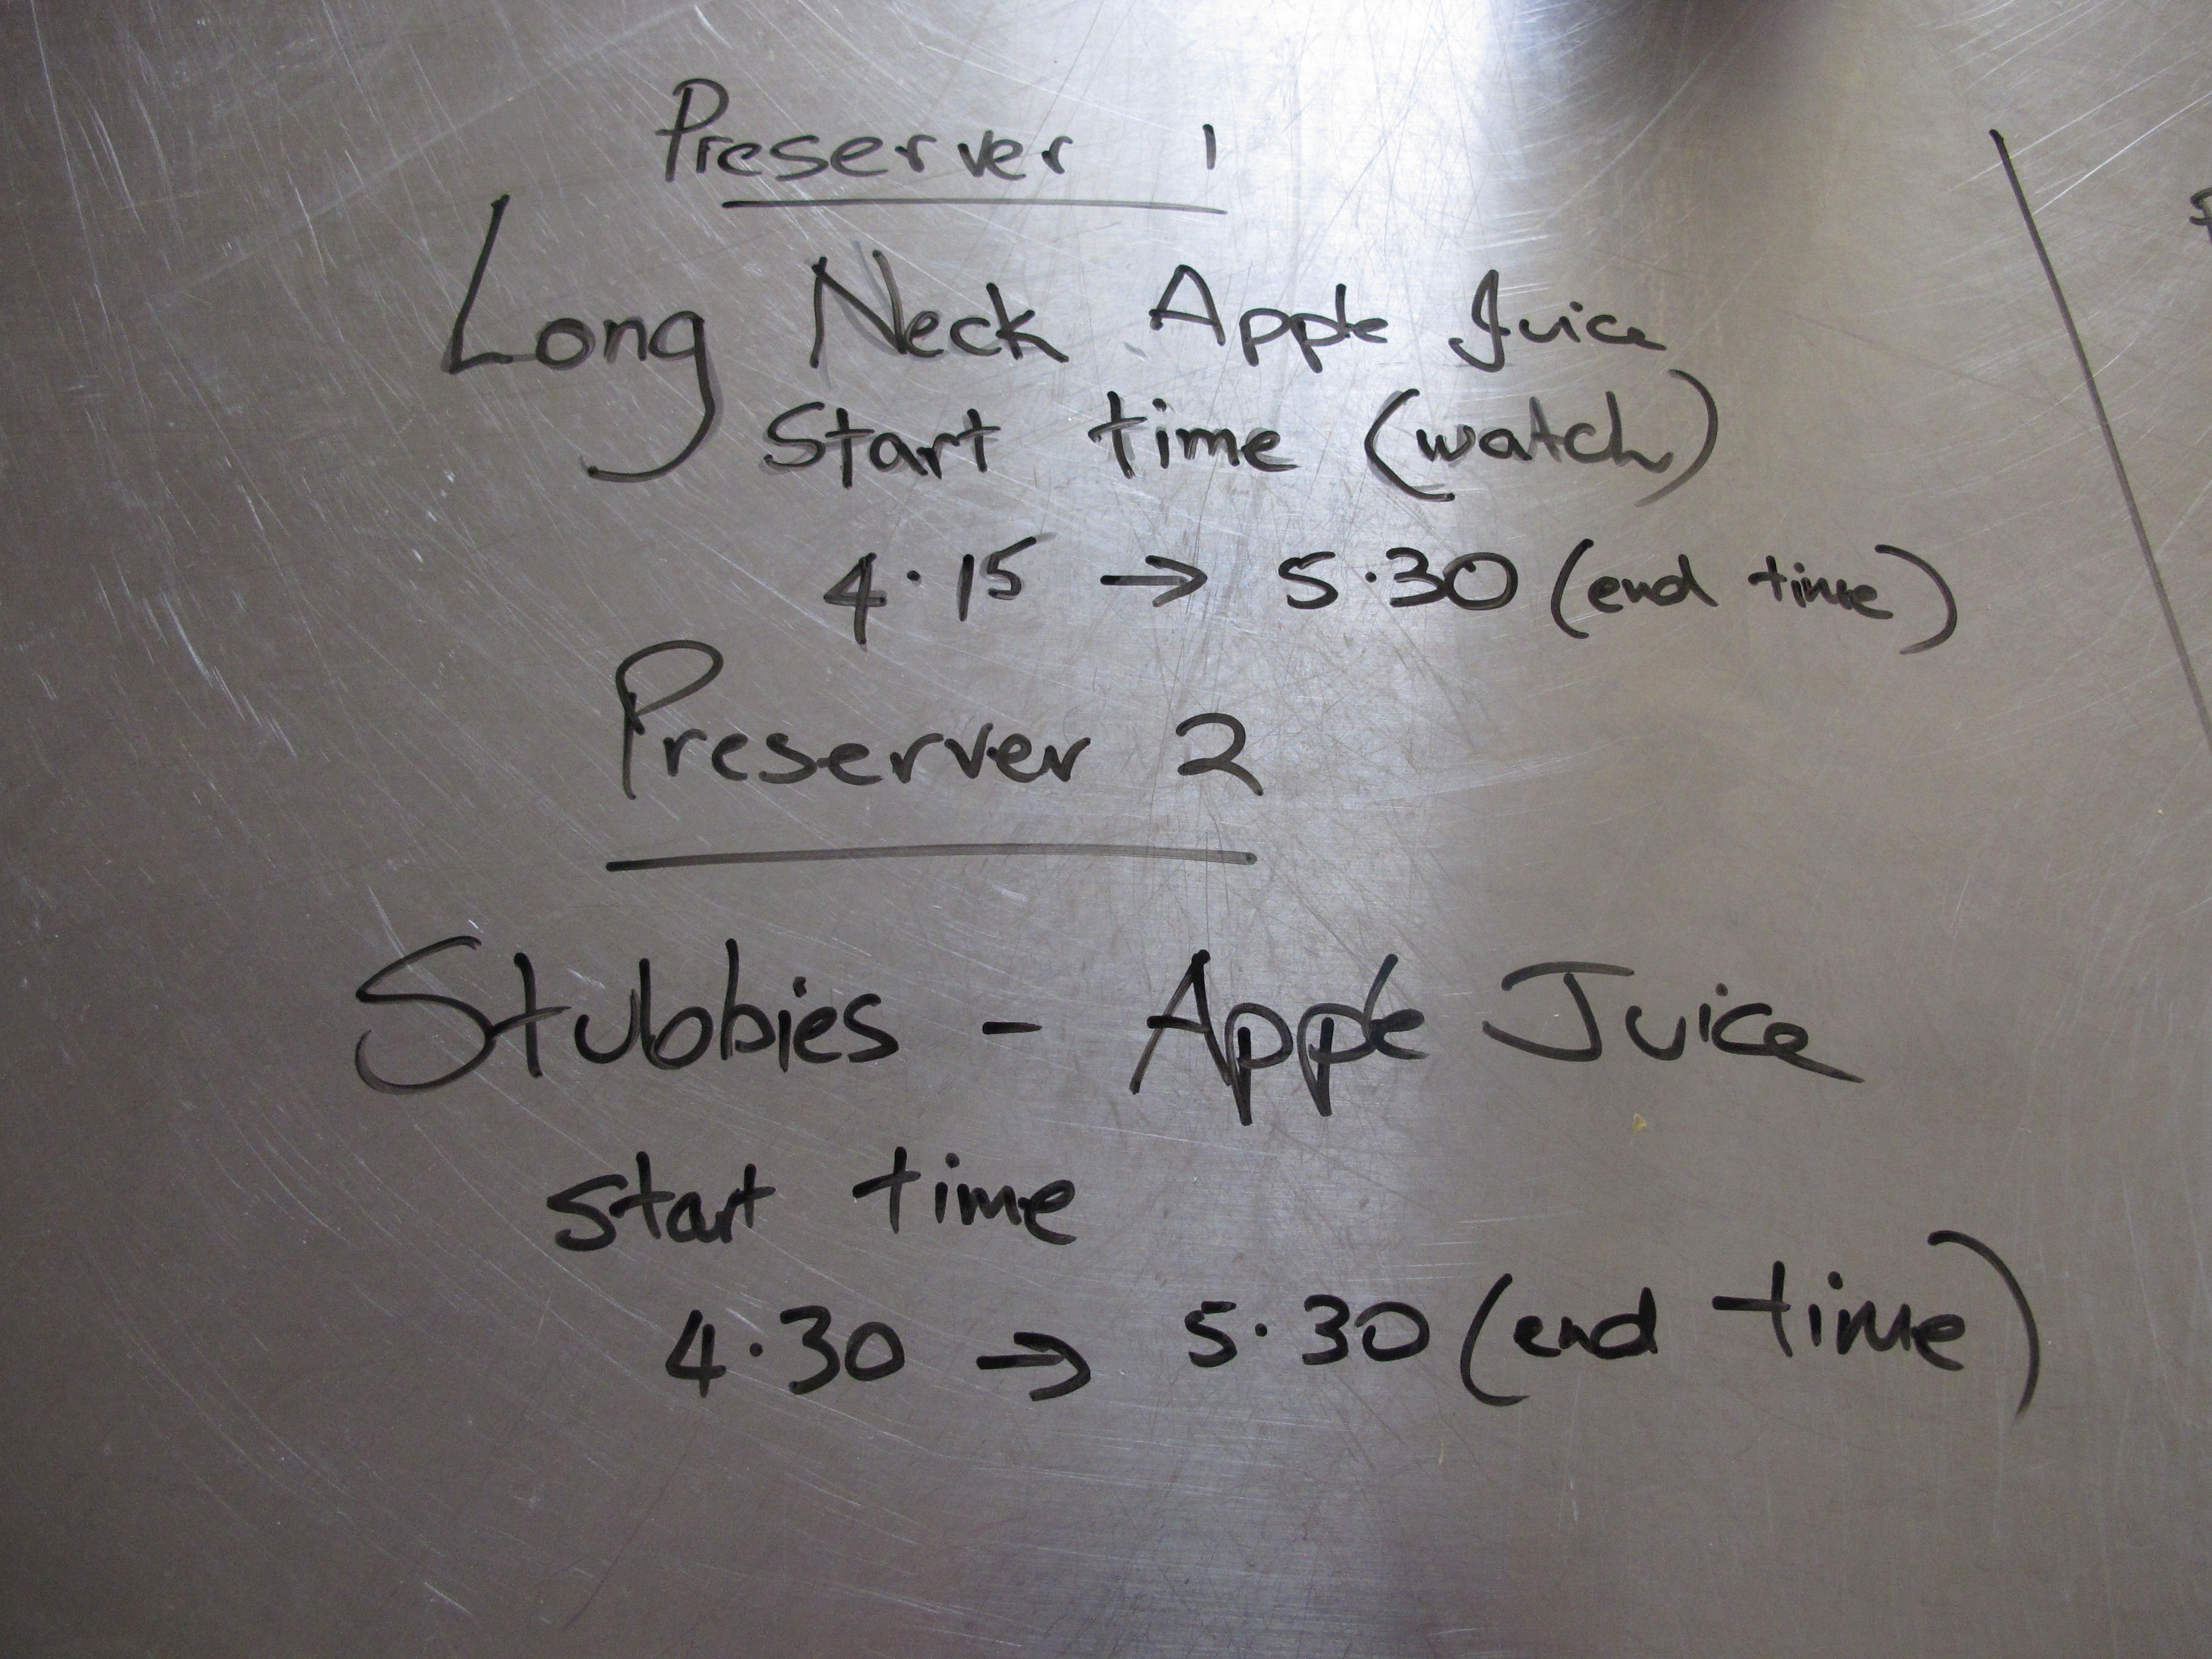 Preserver 1
Long Neck Apple Juice
Start time (watch)
4.15 → 5.30 (end time)
Preserver 2
Stubbies - Apple Juice
start time
4.30 → 5.30 (end time)